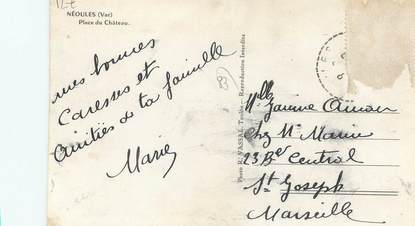 NÉOULES (Var)
Place du Château.
mes bonnes
Caresses et
Amitiés a ta famille
Marie
83
Reproduction Interdite
Mlle Jeanne
Chez Mr Marin
23 Bd Central
St Joseph
Marseille